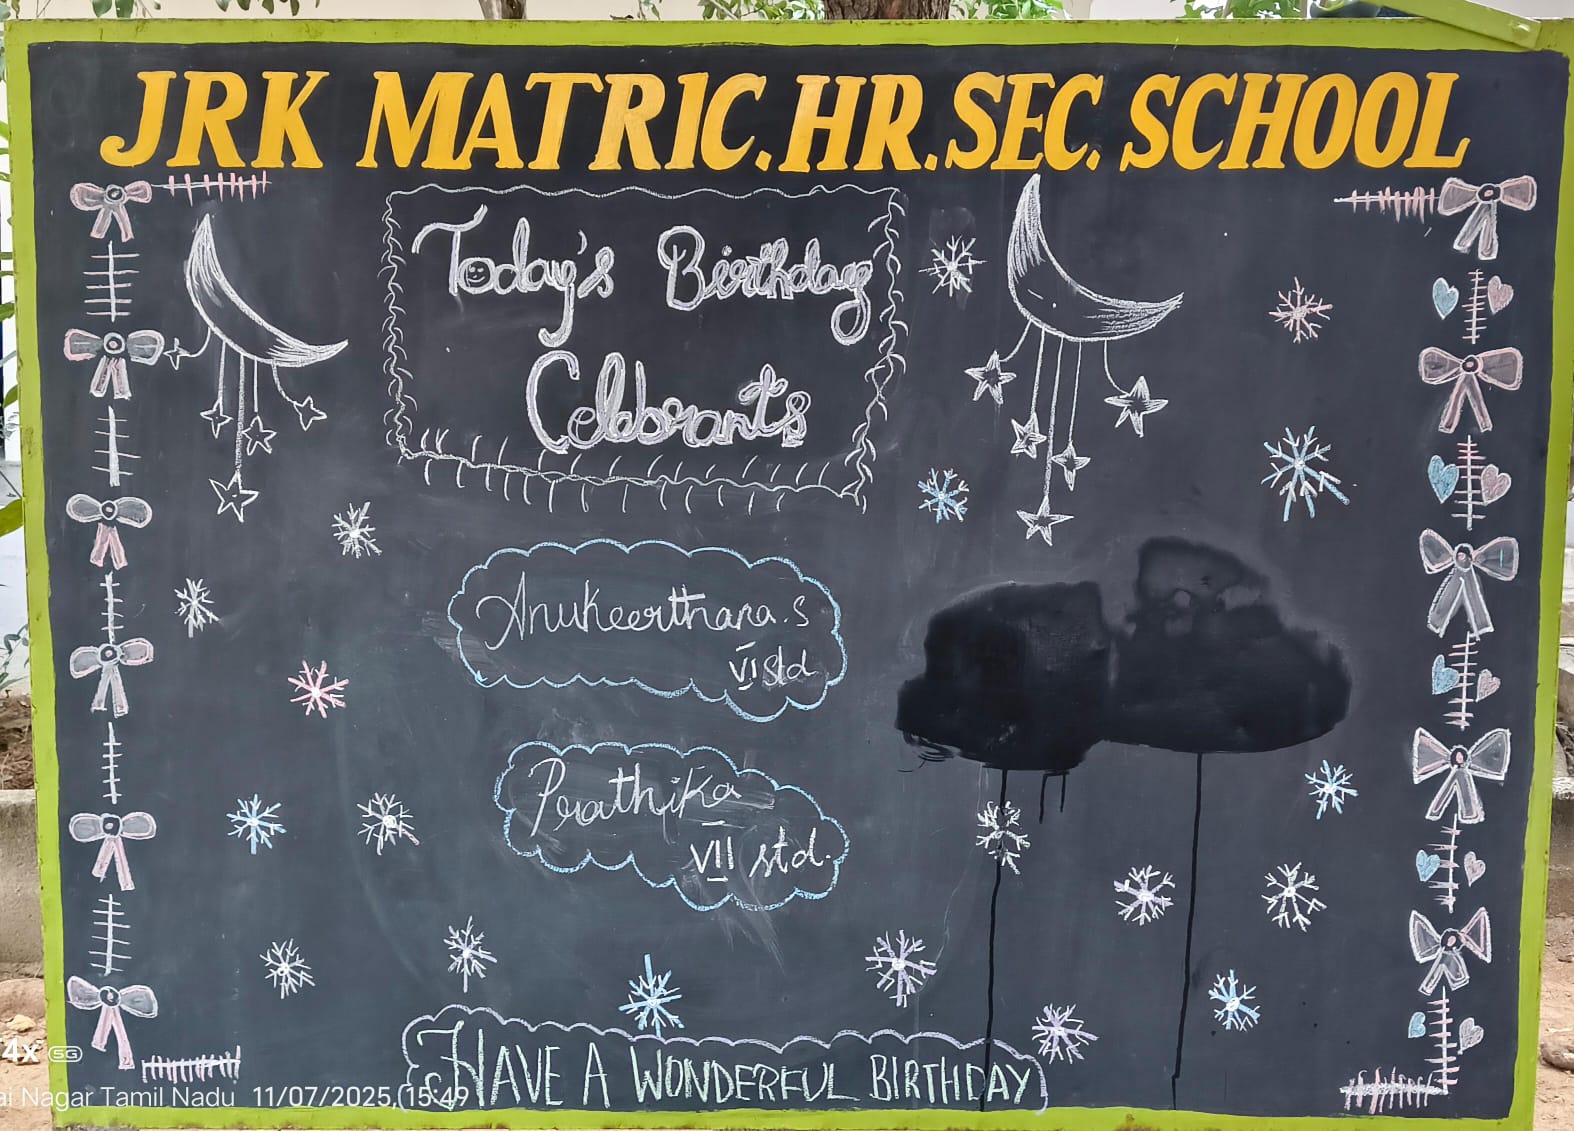 JRK MATRIC.HR.SEC. SCHOOL
Today's Birthday
Celebrants
Anukeerthana.S
VI std
Prathika
VII std.
HAVE A WONDERFUL BIRTHDAY
4x 5G
Nagar Tamil Nadu 11/07/2025, 15:49